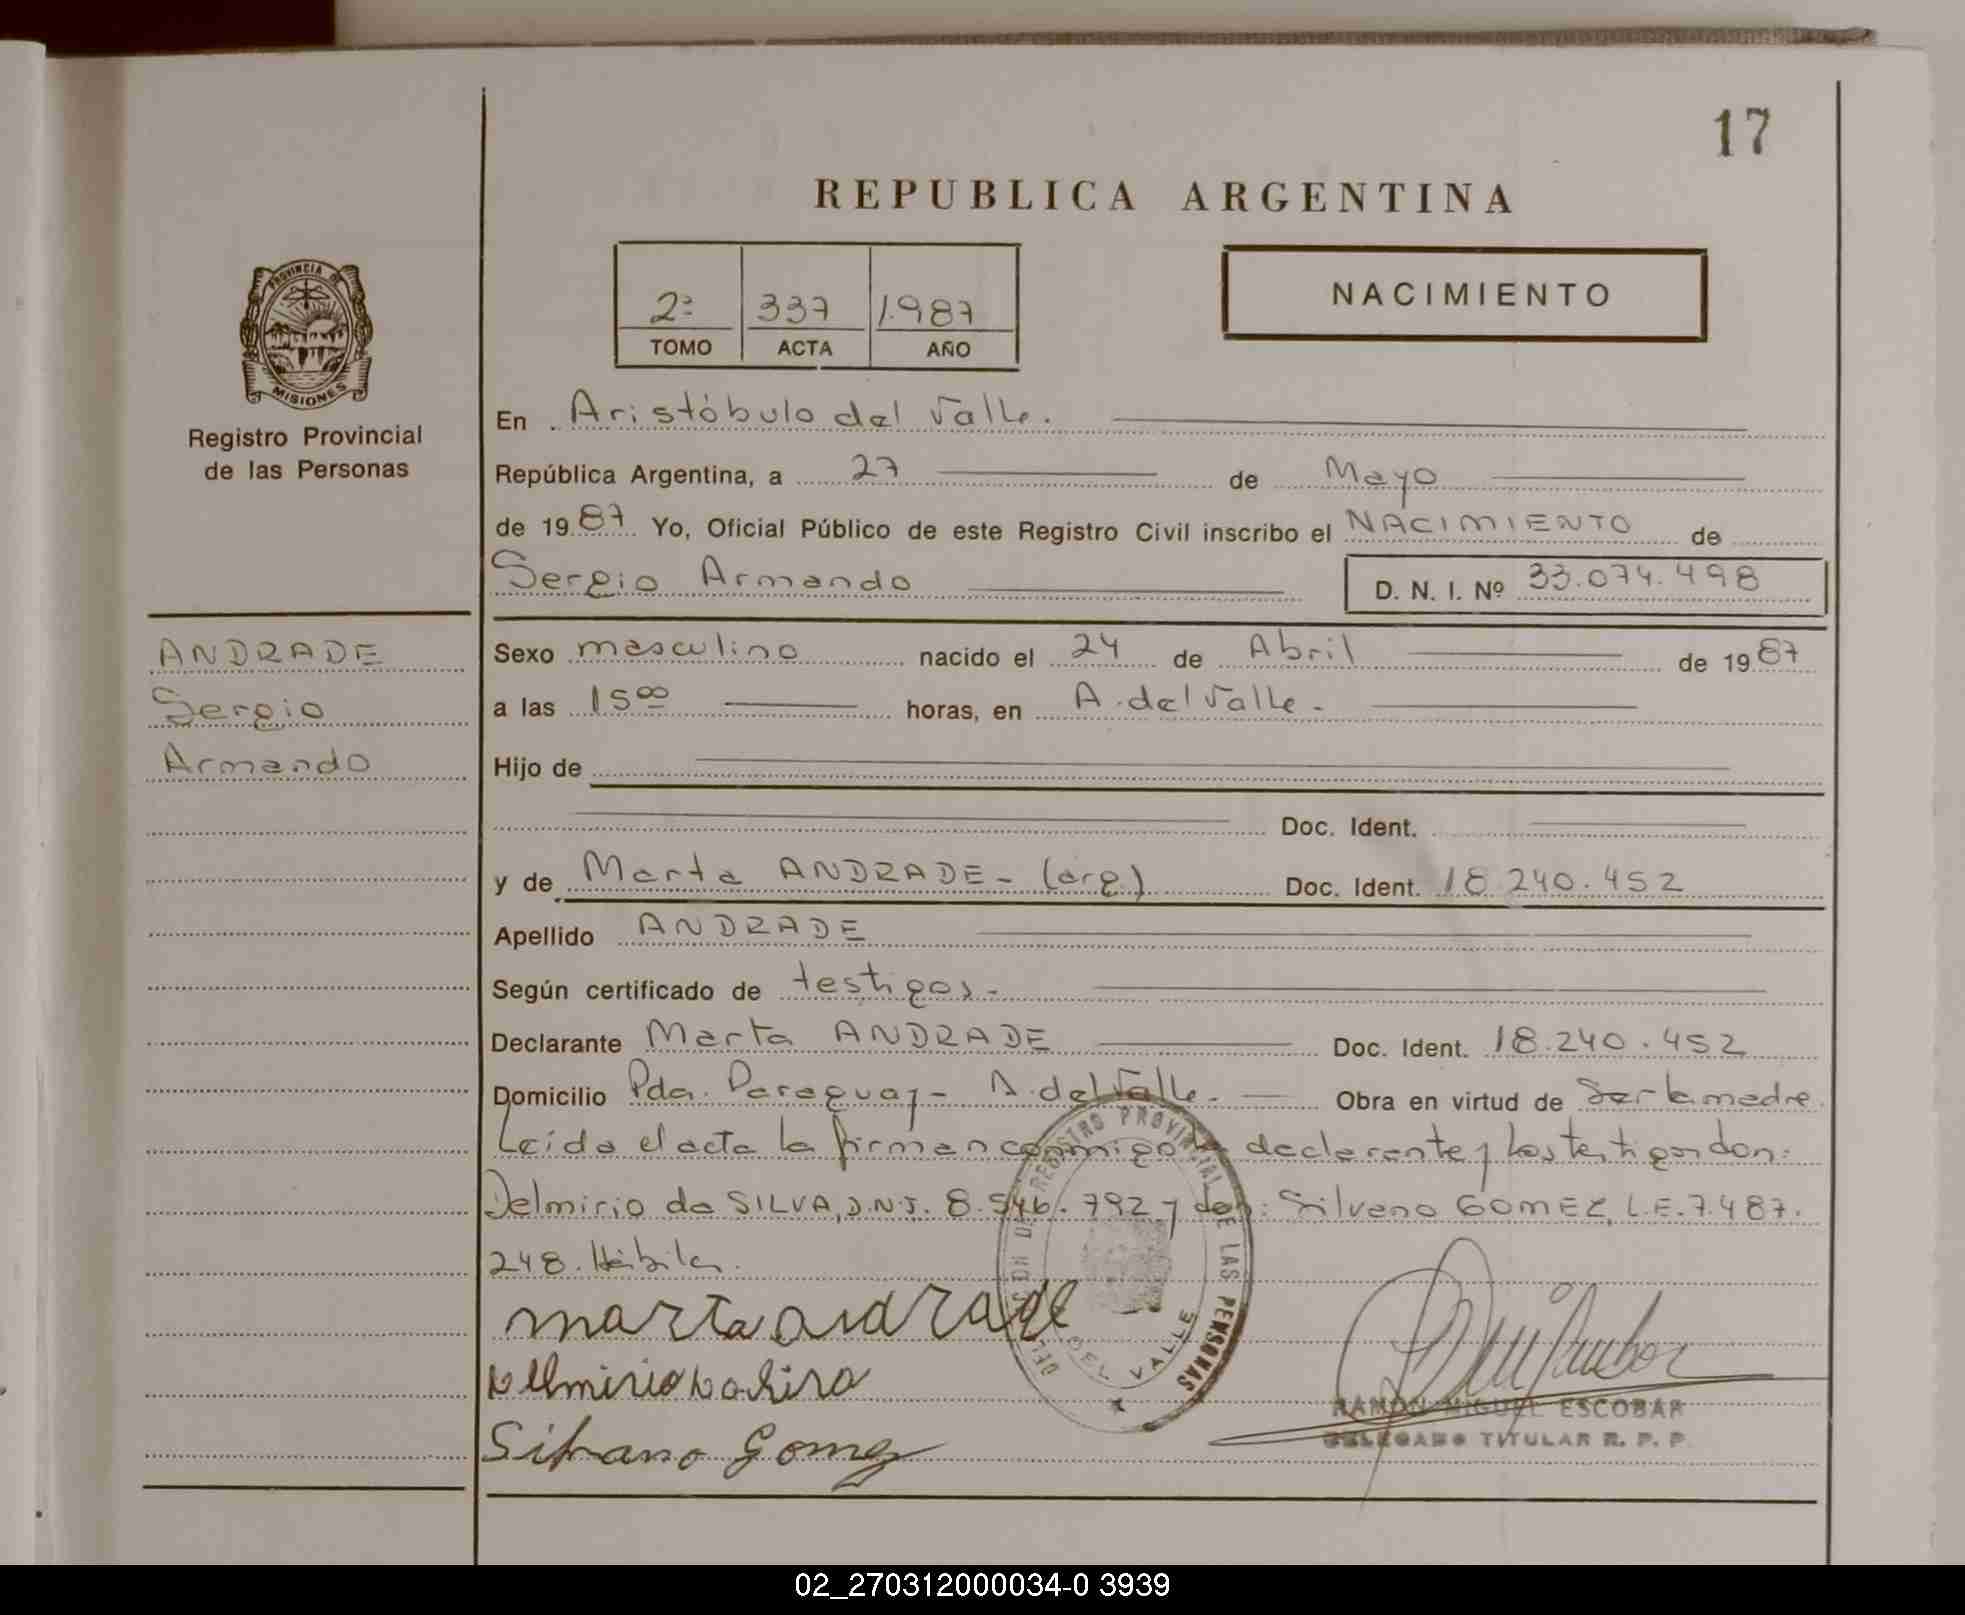 17
REPUBLICA ARGENTINA
2ª 337 1.987
TOMO ACTA AÑO
NACIMIENTO
PROVINCIA DE
MISIONES
Registro Provincial
de las Personas
En Aristóbulo del Valle.
República Argentina, a 27 de Mayo
de 1987 Yo, Oficial Público de este Registro Civil inscribo el NACIMIENTO de
Sergio Armando D. N. I. Nº 33.074.498
ANDRADE
Sergio
Armando
Sexo masculino nacido el 24 de Abril de 1987
a las 15 00 horas, en A. del Valle.
Hijo de
Doc. Ident.
y de Marta ANDRADE - (arg.) Doc. Ident. 18.240.452
Apellido ANDRADE
Según certificado de testigos.
Declarante Marta ANDRADE Doc. Ident. 18.240.452
Domicilio Pda. Paraguay - A. del Valle. Obra en virtud de Ser la madre.
Leída el acta la firman conmigo la declarante y los testigos don:
Delmirio da SILVA, D.N.I. 8.546.792 y don: Silvano GOMEZ, L.E. 7.487.
248. Hábiles.
marta andrade
Silvano Gomez
REGISTRO PROVINCIAL DE LAS PERSONAS
DEL VALLE
RAMON MIGUEL ESCOBAR
DELEGADO TITULAR R. P. P.
02_270312000034-0 3939